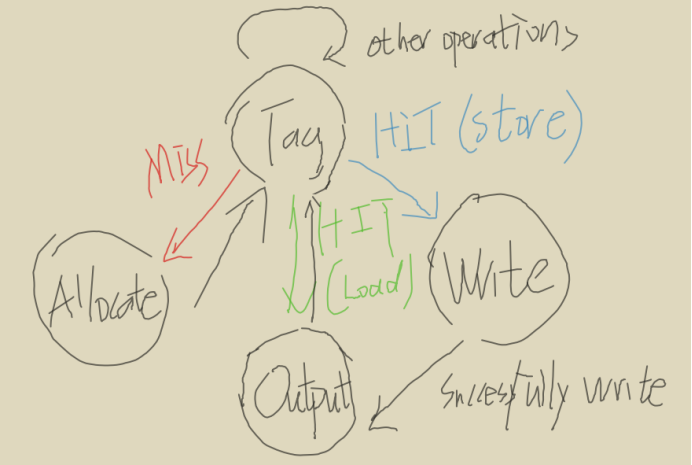 other operations
Tag
HIT (store)
Miss
HIT
(Load)
Allocate
Write
Output
Successfully write